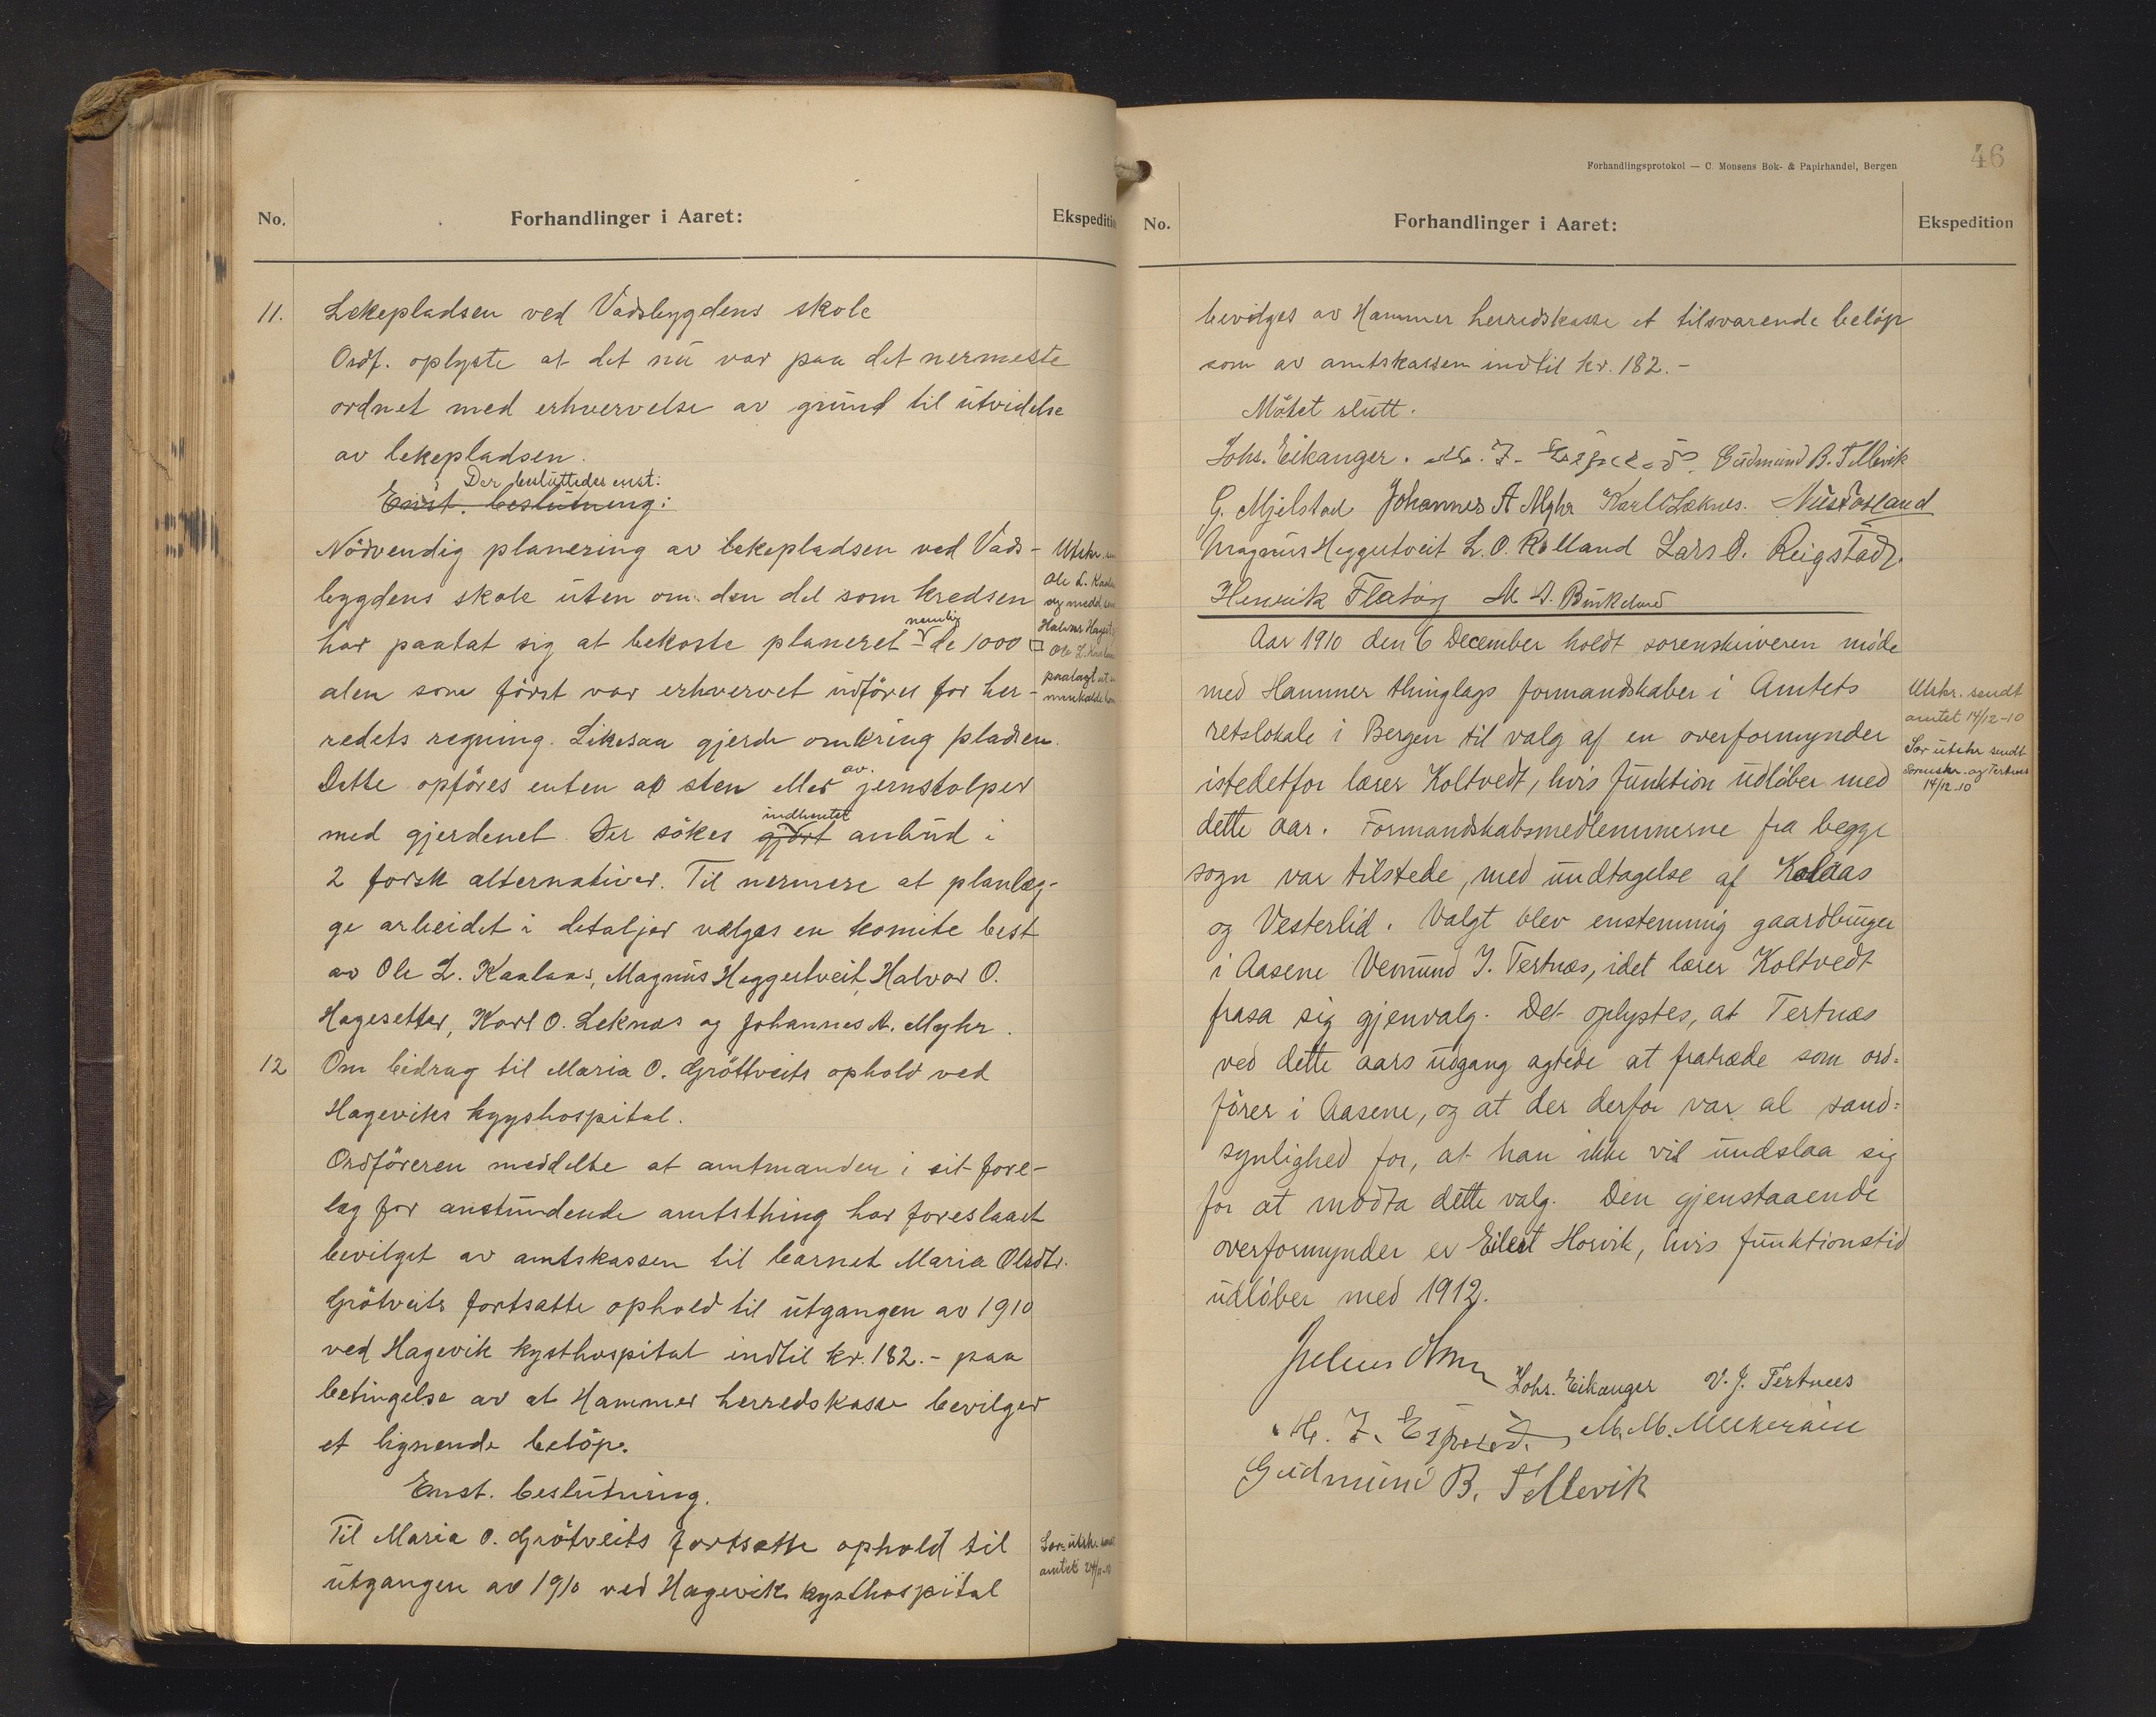 No.
Forhandlinger i Aaret:
Ekspediti
11.
Lekepladsen ved Vadsbygdens skole
Ordf. oplyste at det nu var paa det nermeste
ordnet med erhvervelse av grund til utvidelse
av lekepladsen.
Der besluttedes enst:
Enst. beslutning:
Nödvendig planering av lekepladsen ved Vads-
bygdens skole uten om den del som kredsen
har paatat sig at bekoste planeret - nemlig de 1000 □
alen som först var erhvervet utföres for her-
redets regning. Likesaa gjerde omkring pladsen.
Dette opföres enten av sten eller av jernstolper
med gjerdenet. Der sökes gjort indhentet anbud i
2 forsk alternativer. Til nermere at planlæg-
ge arbeidet i detaljer vælges en komite best
av Ole L. Kaalaas, Magnus Heggertveit, Halvor O.
Hagesetter, Karl O. Leknes og Johannes A. Myhr.
Utskr.
Ole L.
og medd.
Halvor
Ole L.
paalagt
12
Om bidrag til Maria O. Gröttveits ophold ved
Hageviks kyyshospital.
Ordföreren meddelte at amtmanden i sit fore-
læg for anstundende amtsthing har foreslaaet
bevilget av amtskassen til barnet Maria Olsdtr.
Grötveits fortsatte ophold til utgangen av 1910
ved Hagevik kysthospital indtil kr. 182.- paa
betingelse av at Hammer herredskasse bevilger
et lignende belöp.
Enst. beslutning.
Til Maria O. Grötveits fortsatte ophold til
utgangen av 1910 ved Hagevik kysthospital
Sær. utskr.
amtet 24/11-10
Forhandlingsprotokol — C. Monsens Bok- & Papirhandel, Bergen
46
No.
Forhandlinger i Aaret:
Ekspedition
bevilges av Hammer herredskasse et tilsvarende belöp
som av amtskassen indtil kr. 182.-
Mötet slutt.
Johs. Eikanger. Gudmund B. Tellevik
G. Mjelstad Johannes A Myhr Karl O Leknes.
Magnus Heggertveit L. O. Rolland Lars O. Reigstad
Henrik Flatöy M. A. Birkeland
Aar 1910 den 6 December holdt sorenskriveren möde
med Hammer thinglags formandskaber i Amtets
retslokale i Bergen til valg af en overformynder
istedetfor lærer Koltvedt, hvis funktion udlöber med
dette aar. Formandskabsmedlemmerne fra begge
sogn var tilstede, med undtagelse af Kalaas
og Vesterlid. Valgt blev enstemmig gaardbruger
i Aasene Vemund J. Tertnæs, idet lærer Koltvedt
frasa sig gjenvalg. Det oplystes, at Tertnæs
ved dette aars udgang agtede at fratræde som ord=
förer i Aasene, og at der derfor var al sand=
synlighed for, at han ikke vil undslaa sig
for at modta dette valg. Den gjenstaaende
overformynder er Eilert Horvik, hvis funktionstid
udlöber med 1912.
Utskr. sendt
amtet 14/12-10
Sær utskr sendt
Sorenskr. og Tertnes
14/12-10
Julius
Johs. Eikanger V. J. Tertnees
M. M.
Gudmund B. Tellevik